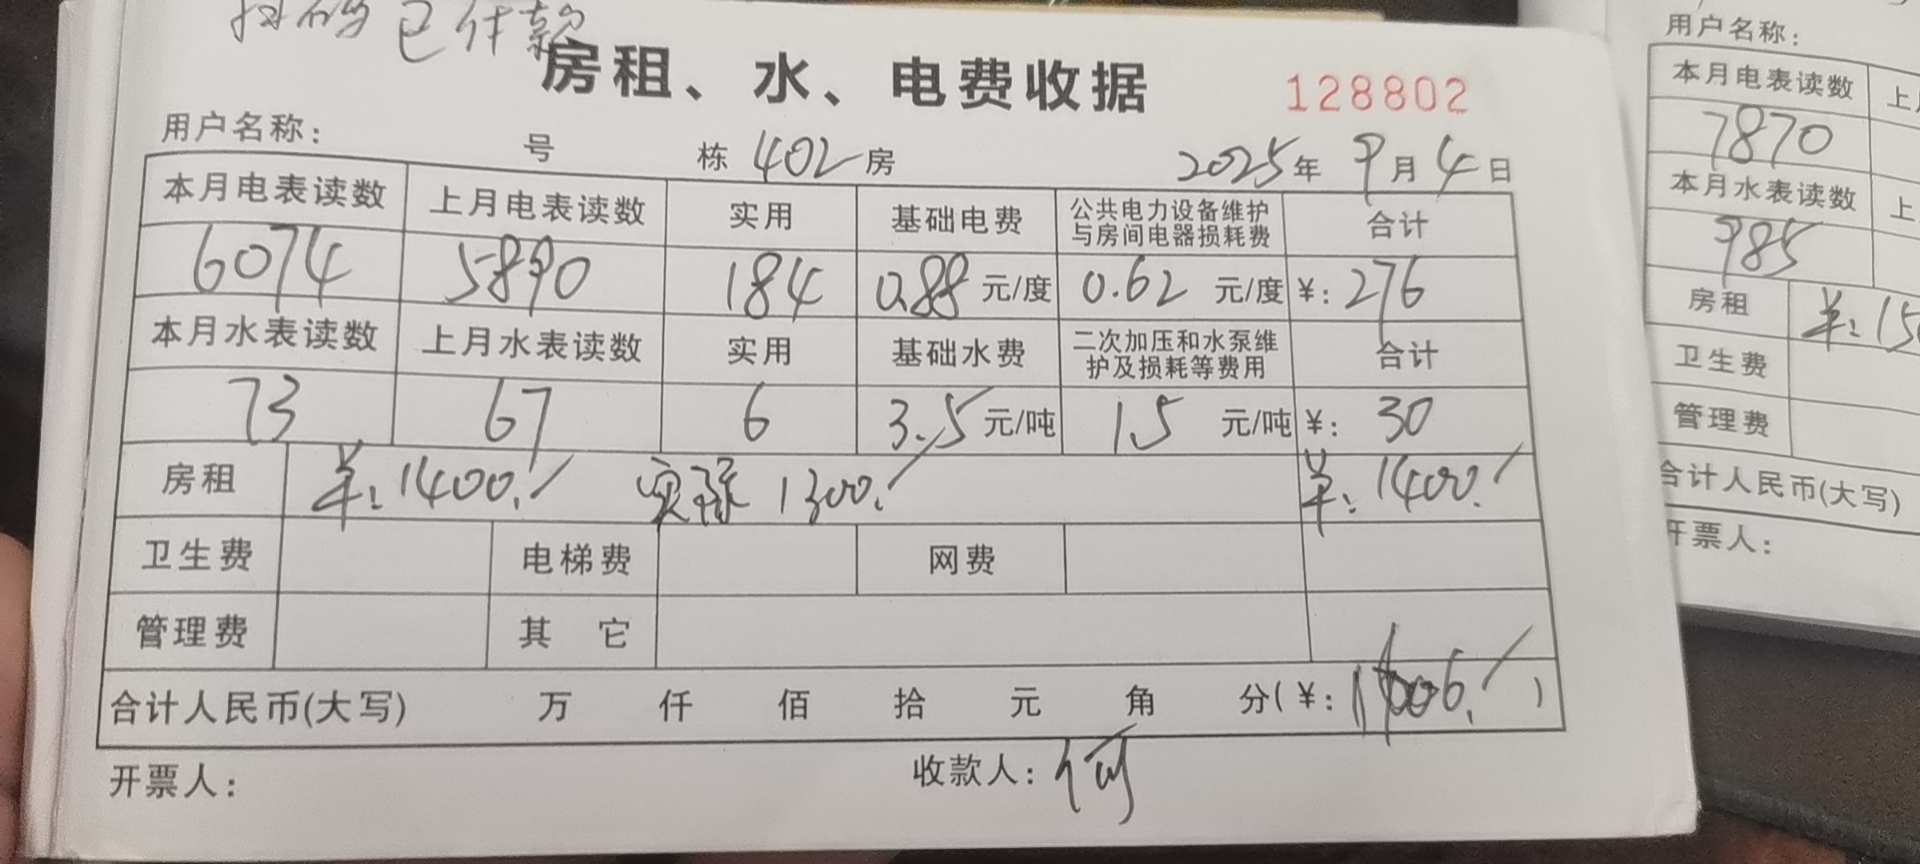 扫码已付款
房租、水、电费收据
128802
用户名称： 号 栋 402 房 2025年 9月 4日
本月电表读数 上月电表读数 实用 基础电费 公共电力设备维护与房间电器损耗费 合计
6074 5890 184 0.88 元/度 0.62 元/度 ¥：276
本月水表读数 上月水表读数 实用 基础水费 二次加压和水泵维护及损耗等费用 合计
73 67 6 3.5 元/吨 15 元/吨 ¥：30
房租 ¥：1400./ 实际 1300./ ¥：1400./
卫生费 电梯费 网费
管理费 其它
合计人民币(大写) 万 仟 佰 拾 元 角 分(¥： )
开票人： 收款人：何
用户名称：
本月电表读数 上
7870
本月水表读数 上
985
房租 ¥：15
卫生费
管理费
合计人民币(大写)
开票人：